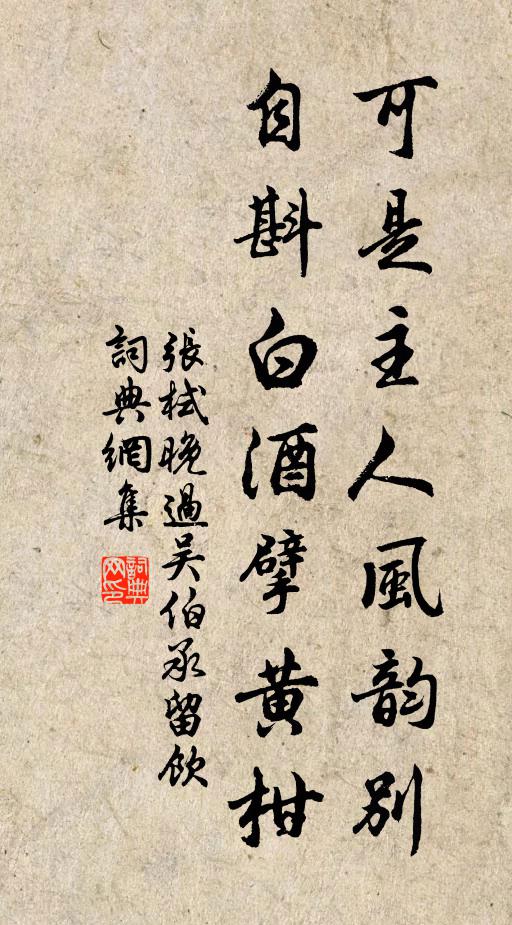 可是主人風韵別
自斟白酒擘黄柑
張栻晚過吴伯承留飲
詞典網集
詞典网印